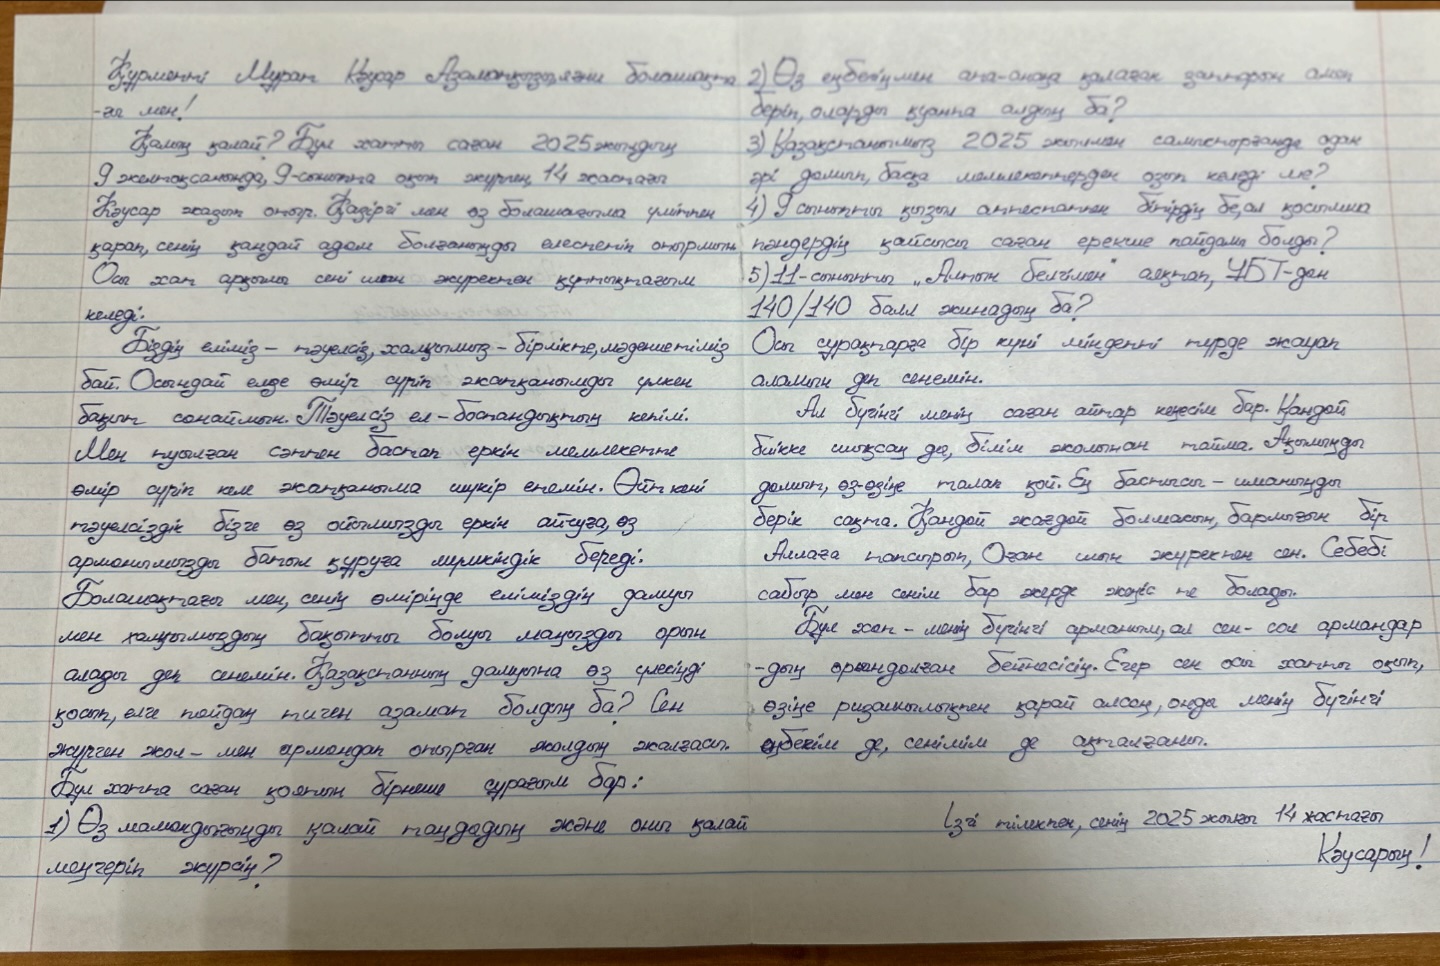 Құрметті Мұрат Кәусар Азаматқызы, яғни болашақта
-ғы мен!
Қалың қалай? Бұл хатты саған 2025 жылдың
9 желтоқсанында, 9-сыныпта оқып жүрген, 14 жастағы
Кәусар жазып отыр. Қазіргі мен өз болашағыма үмітпен
қарап, сенің қандай адам болғаныңды елестетіп отырмын.
Осы хат арқылы сені шын жүректен құттықтағым
келеді.
Біздің еліміз – тәуелсіз, халқымыз – бірлікте, мәдениетіміз
бай. Осындай елде өмір сүріп жатқанымды үлкен
бақыт санаймын. Тәуелсіз ел – бостандықтың кепілі.
Мен туылған сәттен бастап еркін мемлекетте
өмір сүріп келе жатқаныма шүкір етемін. Өйткені
тәуелсіздік бізге өз ойымызды еркін айтуға, өз
арманымызды батыл құруға мүмкіндік береді.
Болашақтағы мен, сенің өміріңде еліміздің дамуы
мен халқымыздың бақытты болуы маңызды орын
алады деп сенемін. Қазақстанның дамуына өз үлесіңді
қосып, елге пайдаң тиген азамат болдың ба? Сен
жүрген жол – мен армандап отырған жолдың жалғасы.
Бұл хатта саған қоятын бірнеше сұрағым бар:
1) Өз мамандығыңды қалай таңдадың және оны қалай
меңгеріп жүрсің?
2) Өз еңбегіңмен ата-анаңа қалаған заттарын алып
беріп, оларды қуанта алдың ба?
3) Қазақстанымыз 2025 жылмен салыстырғанда одан
әрі дамып, басқа мемлекеттерден озып келеді ме?
4) 9 сыныпты қызыл аттестатпен бітірдің бе, ал қосымша
пәндердің қайсысы саған ерекше пайдалы болды?
5) 11-сыныпты „Алтын белгімен" аяқтап, ҰБТ-дан
140/140 балл жинадың ба?
Осы сұрақтарға бір күні міндетті түрде жауап
аламын деп сенемін.
Ал бүгінгі менің саған айтар кеңесім бар. Қандай
биікке шықсаң да, білім жолынан тайма. Ақылыңды
дамытып, өз-өзіңе талап қой. Ең бастысы – иманыңды
берік сақта. Қандай жағдай болмасын, барлығын бір
Аллаға тапсырып, Оған шын жүрекпен сен. Себебі
сабыр мен сенім бар жерде жеңіс те болады.
Бұл хат – менің бүгінгі арманым, ал сен - сол армандар
-дың орындалған бейнесісің. Егер сен осы хатты оқып,
өзіңе ризашылықпен қарай алсаң, онда менің бүгінгі
еңбегім де, сенімім де ақталғаны.
Ізгі тілекпен, сенің 2025 жылғы 14 жастағы
Кәусарың!